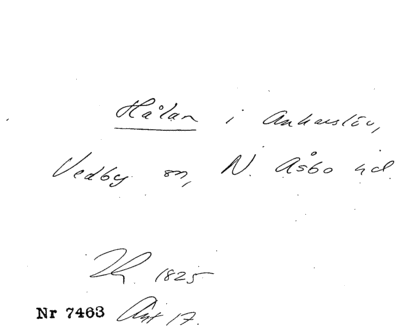 Hålan i Ankarslöv,
Vedby sn, N. Åsbo hd.
1825
Nr 7463 17.